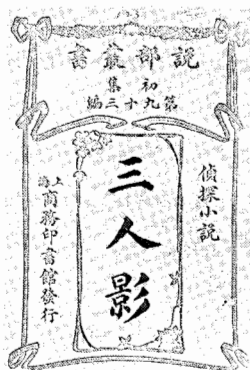 説部叢書
初集
第九十三編
偵探小説
三人影
上海商務印書館發行